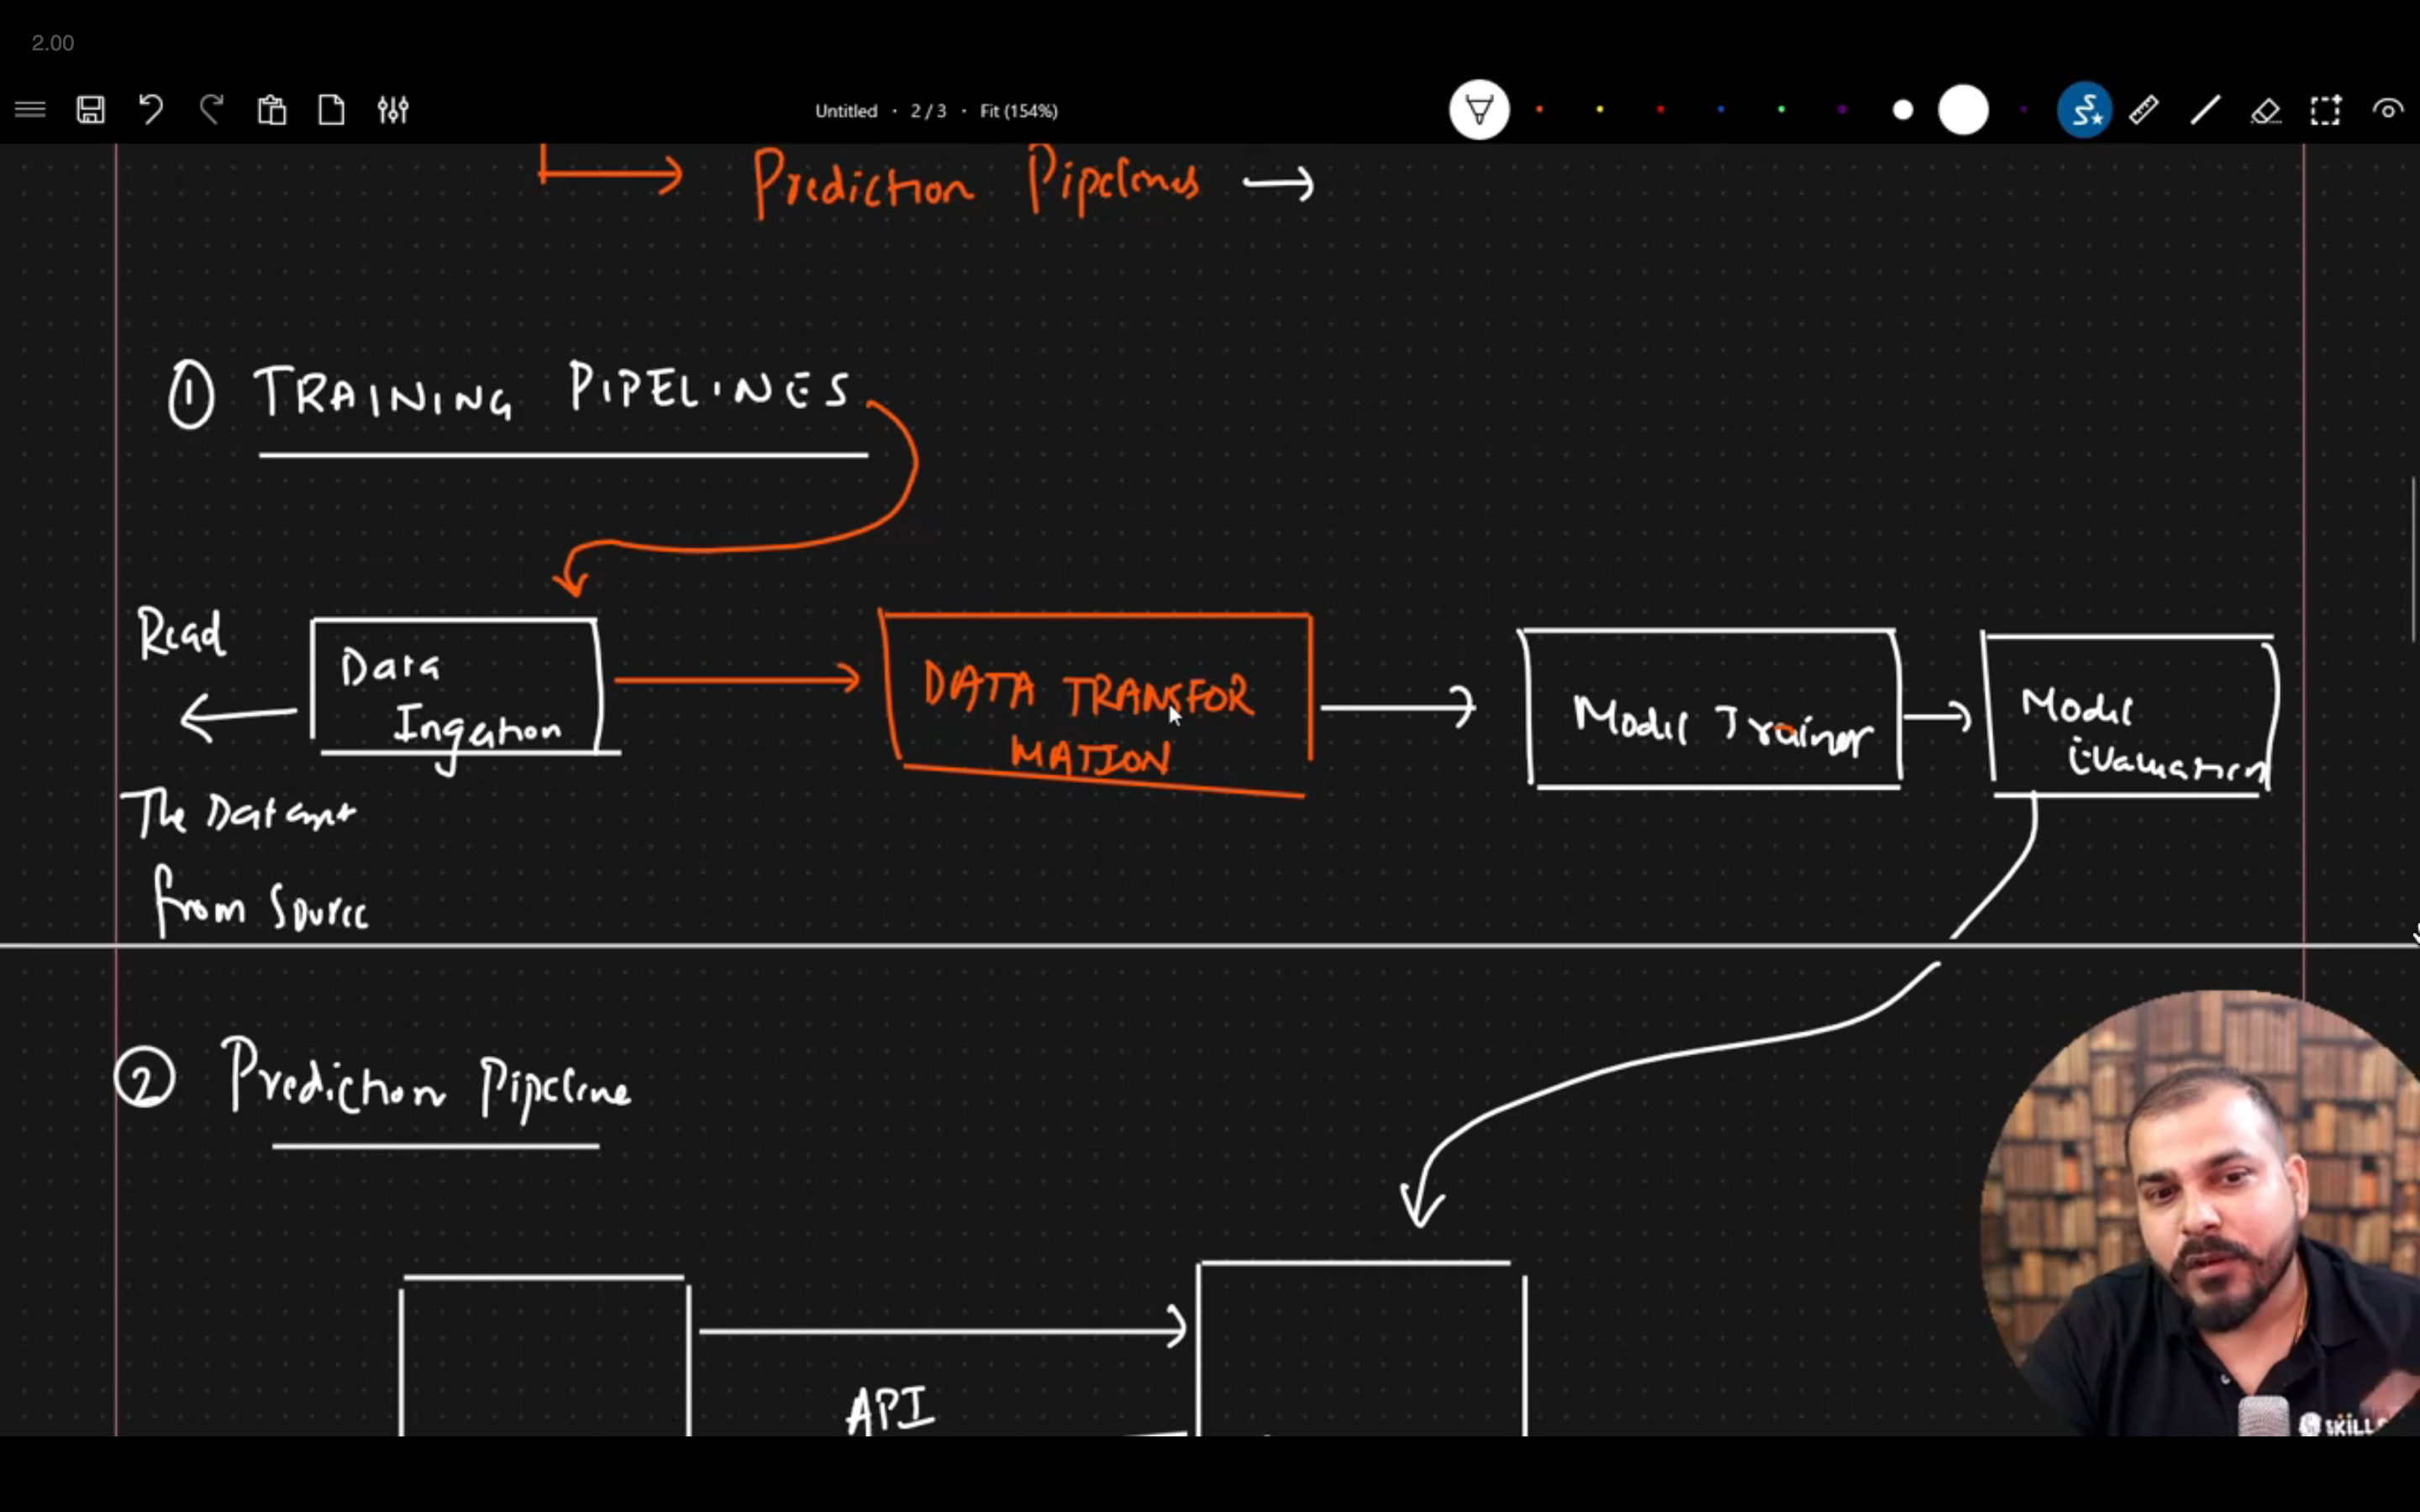 2.00
Untitled · 2 / 3 · Fit (154%)
Prediction Pipelines
1 TRAINING PIPELINES
Read
The Dataset
from Source
Data
Ingestion
DATA TRANSFOR
MATION
Model Trainer
Model
Evaluation
2 Prediction Pipeline
API
SKILLS